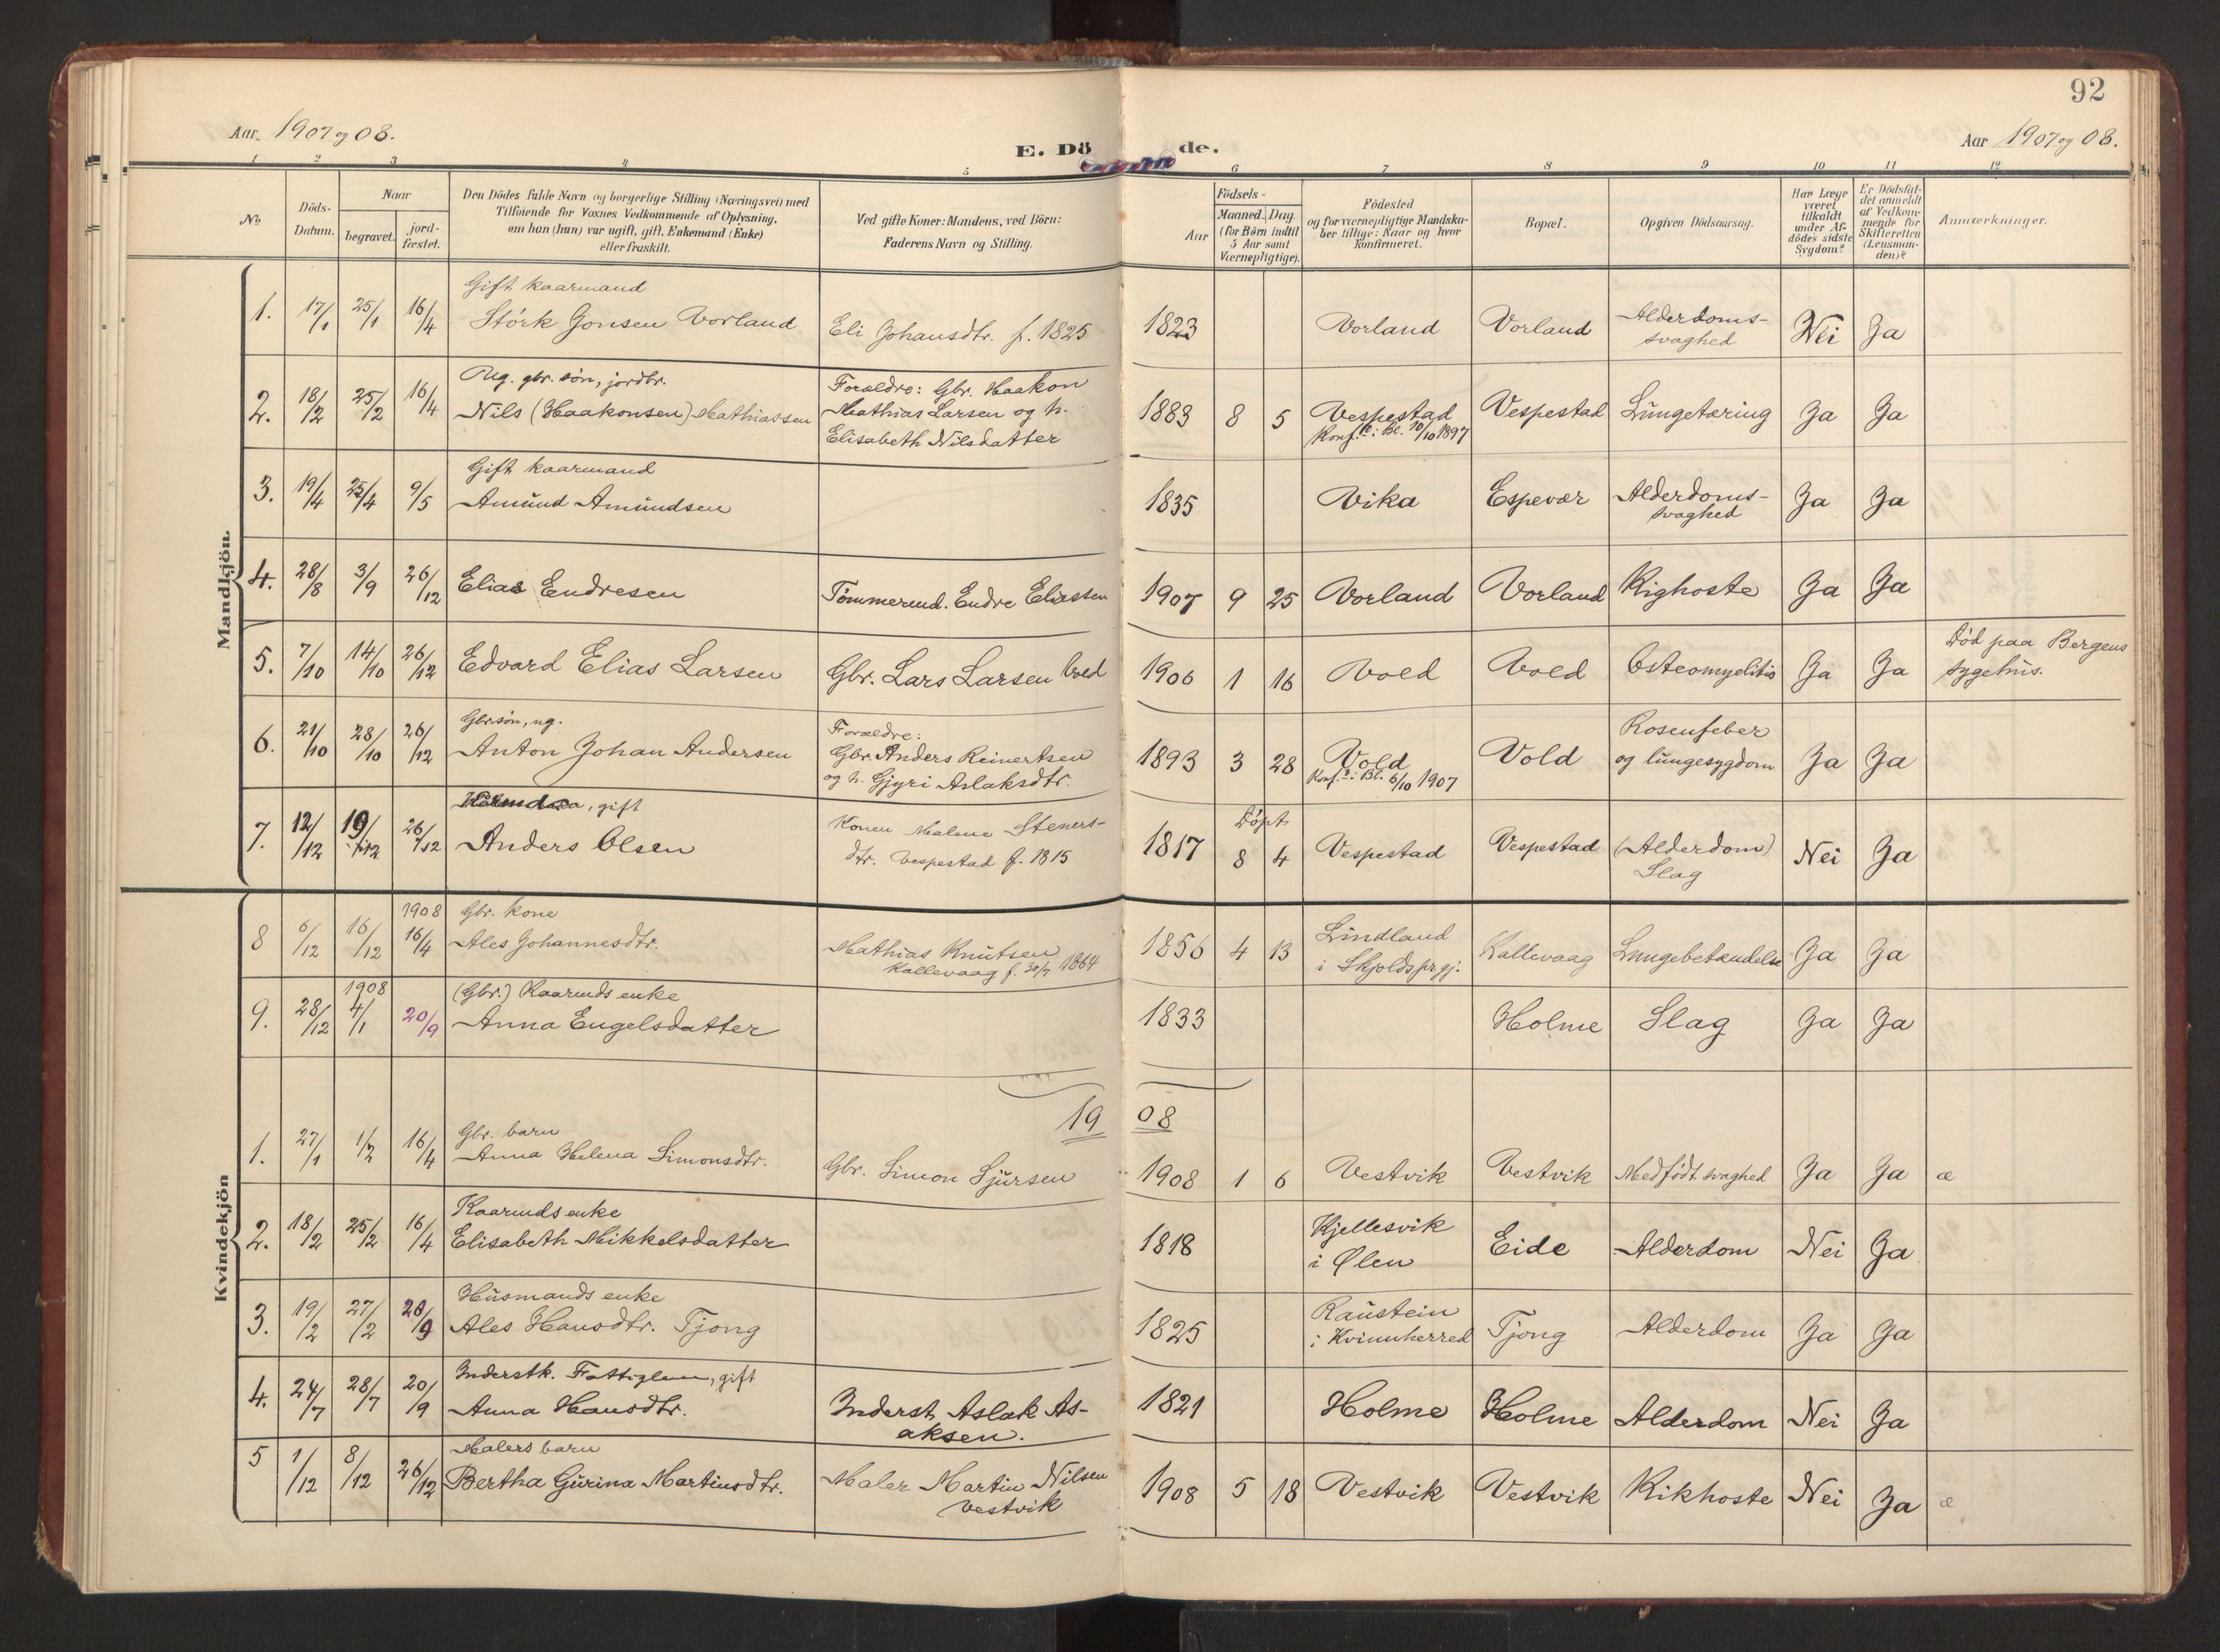 92
Aar 1907 og 08.
E. Döde.
Aar 1907 og 08.
1 2 3 4 5 6 7 8 9 10 11 12
No.
Döds-Datum.
Naar
begravet.
jord-fæstet.
Den Dödes fulde Navn og borgerlige Stilling (Næringsvei) med
Tilföiende for Voxnes Vedkommende af Oplysning,
om han (hun) var ugift, gift, Enkemand (Enke)
eller fraskilt.
Ved gifte Koner: Mandens, ved Börn:
Faderens Navn og Stilling.
Födsels-
Aar
Maaned. Dag
(for Börn indtil
5 Aar samt
Værnepligtige).
Födested
og for værnepligtige Mandska-
ber tillige: Naar og hvor
Konfirmeret.
Bopæl.
Opgiven Dödsaarsag.
Har Læge
været
tilkaldt
under Af-
dödes sidste
Sygdom?
Er Dödsfal-
det anmeldt
af Vedkom-
mende for
Skifteretten
(Lensman-
den)?
Anmerkninger.
Mandkjön.
1. 17/1 25/1 16/4
Gift kaarmand
Störk Jonsen Vorland
Eli Johansdtr. f. 1825
1823 Vorland Vorland
Alderdoms-
svaghed
Nei Ja
2. 18/2 25/2 16/4
Ug. gbr. søn, jordbr.
Nils (Haakonsen) Mathiassen
Forældre: Gbr. Haakon
Mathias Larsen og h.
Elisabeth Nilsdatter
1883 8 5 Vespestad
Konf. i Bl. 10/10 1897
Vespestad Lungetæring Ja Ja
3. 19/4 25/4 9/5
Gift kaarmand
Amund Amundsen
1835 Vika Espevær
Alderdoms-
svaghed
Ja Ja
4. 28/8 3/9 26/12
Elias Endresen
Tømmermd. Endre Eliassen
1907 9 25 Vorland Vorland Kighoste Ja Ja
5. 7/10 14/10 26/12
Edvard Elias Larsen
Gbr. Lars Larsen Vold
1906 1 16 Vold Vold Osteomyelitis Ja Ja
Død paa Bergens
sygehus.
6. 21/10 28/10 26/12
Gbr.søn, ug.
Anton Johan Andersen
Forældre:
Gbr. Anders Reinertsen
og h. Gjyri Aslaksdtr.
1893 3 28 Vold
Konf. i Bl. 6/10 1907
Vold
Rosenfeber
og lungesygdom
Ja Ja
7. 12/12 19/12 26/12
gift
Anders Olsen
Konen Malene Steners-
dtr. Vespestad f. 1815
1817
Døpt
8 4 Vespestad Vespestad
(Alderdom)
Slag
Nei Ja
8 6/12 16/12
1908
16/4
Gbr. kone
Ales Johannesdtr.
Mathias Knutsen
Kallevaag f. 30/7 1864
1856 4 13
Lindland
i Skjolds prgj.
Kallevaag Lungebetændelse Ja Ja
9. 28/12
1908
4/1 20/9
(Gbr.) Kaarmds enke
Anna Engelsdatter
1833 Holme Slag Ja Ja
1908
Kvindekjön
1. 27/1 1/2 16/4
Gbr. barn
Anna Helena Simonsdtr.
Gbr. Simon Sjursen
1908 1 6 Vestvik Vestvik Medfødt svaghed Ja Ja æ
2. 18/2 25/2 16/4
Kaarmds enke
Elisabeth Mikkelsdatter
1818
Kjellesvik
i Ølen
Eide Alderdom Nei Ja
3. 19/2 27/2 20/9
Husmands enke
Ales Hansdtr. Tjong
1825
Raustein
i Kvinnherred
Tjong Alderdom Ja Ja
4. 24/7 28/7 20/9
Inderstk. Fattiglem, gift
Anna Hansdtr.
Inderst Aslak As-
aksen.
1821 Holme Holme Alderdom Nei Ja
5 1/12 8/12 26/12
Malers barn
Bertha Gurina Martinsdtr.
Maler Martin Nilsen
Vestvik
1908 5 18 Vestvik Vestvik Kikhoste Nei Ja æ